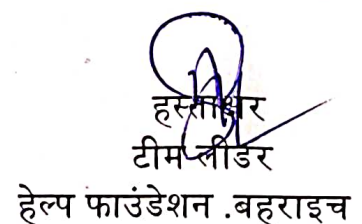 हस्ताक्षर
टीम लीडर
हेल्प फाउंडेशन .बहराइच